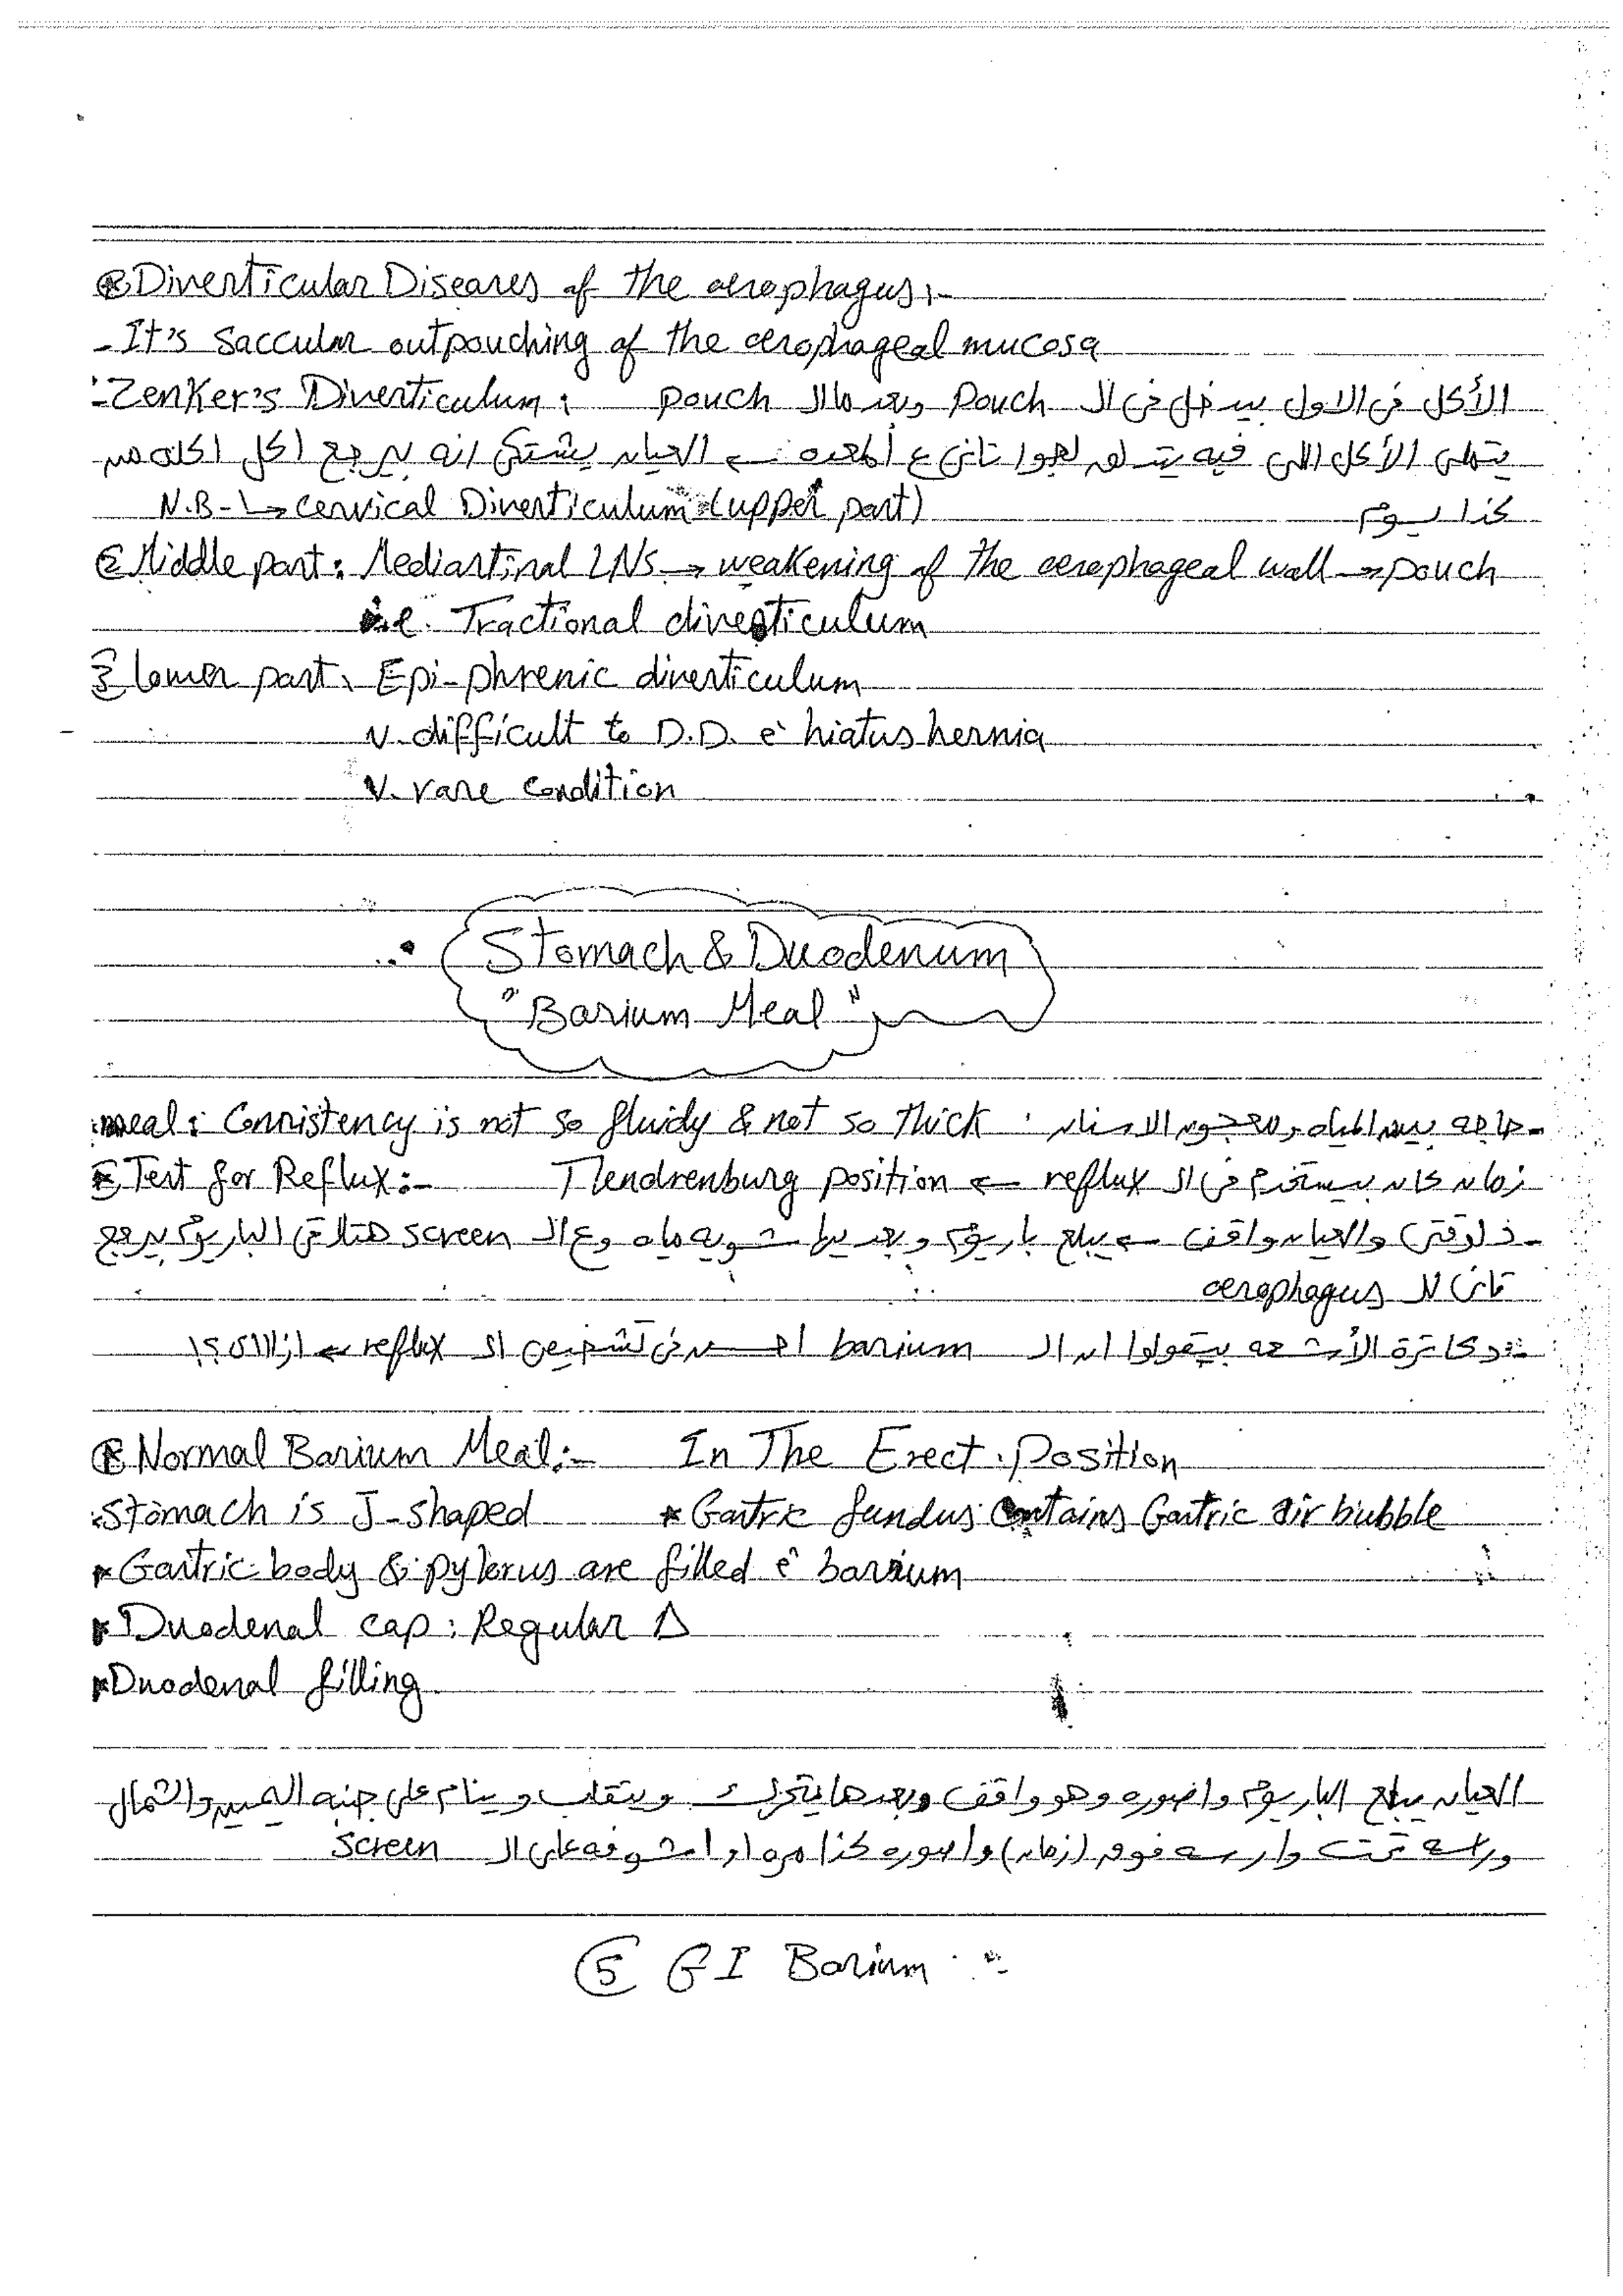 Diverticular Diseases of the oesophagus:-
- It's saccular outpouching of the oesophageal mucosa
Zenker's Diverticulum: الأكل فى الاول بيدخل فى ال Pouch وبعد ما ال pouch
يتملى الأكل اللى فيه ينزله لجوا تانى ع المعده ← العيان يشتكى انه بيرجع اكل اكله من
كذا يوم
N.B. ↳ Cervical Diverticulum (upper part)
② Middle part: Mediastinal LNs → weakening of the oesophageal wall → pouch
i.e. Tractional diverticulum
③ lower part: Epi-phrenic diverticulum
V. difficult to D.D. ē hiatus hernia
V. rare condition
Stomach & Duodenum
"Barium Meal"
meal: Consistency is not so fluidy & not so thick حاجه بين المياه ومعجون الاسنان
Test for Reflux:- زمان كان بيستخدم فى ال reflux ← Tlendrenburg position
- دلوقتى والعيان واقف ← يبلع باريوم وبعديها شويه مياه وع ال screen هتلاقى الباريوم بيرجع
تانى لل oesophagus
دكاترة الأشعه بيقولوا ان ال barium احسن فى تشخيص ال reflux ← ازااااى؟!
Normal Barium Meal:- In The Erect Position
Stomach is J-shaped * Gastric fundus Contains Gastric air bubble
* Gastric body & pylorus are filled ē barium
* Duodenal cap: Regular Δ
* Duodenal filling
العيان يبلع الباريوم واصوره وهو واقف وبعدها يتحرك ويتقلب وينام على جنبه اليمين والشمال
وراسه تحت وارسه فوق (زمان) واصوره كذا مره او اشوفه على ال screen
⑤ GI Barium